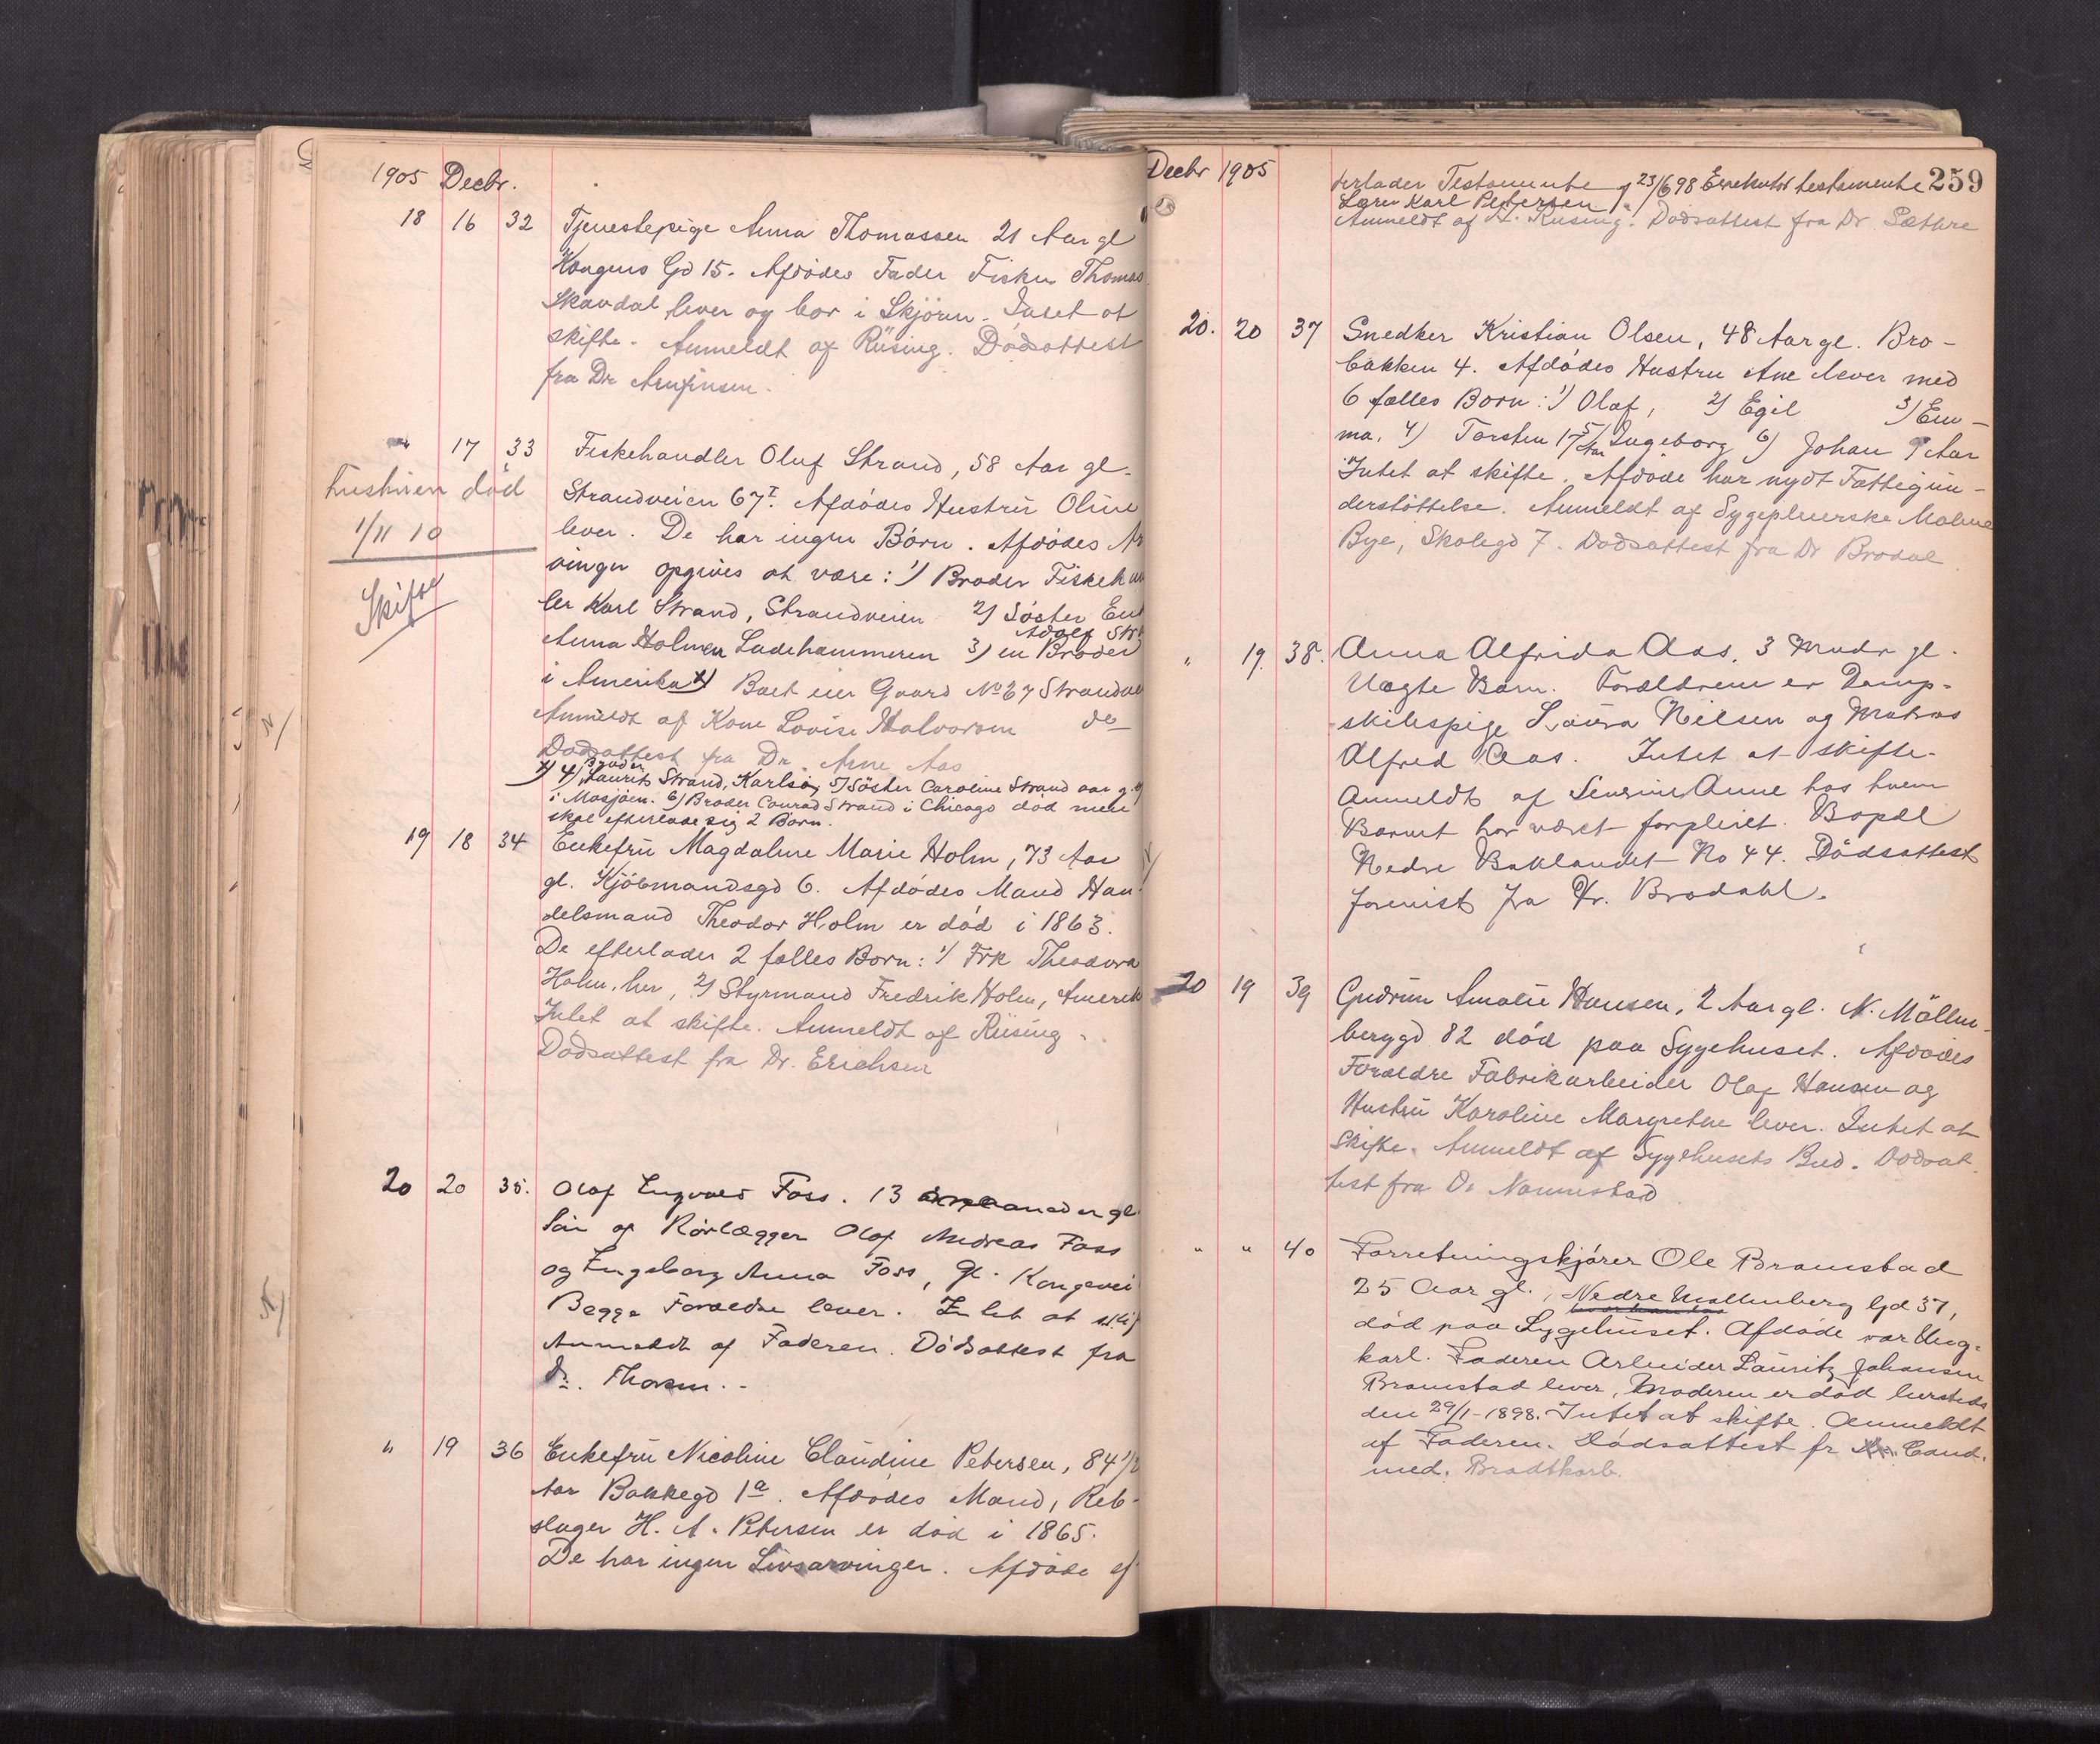 1905 Decbr.
18 16 32 Tjenestepige Anna Thomassen 21 Aar gl
Kongens Gd 15. Afdødes Fader Fisker Thomas
Skavdal lever og bor i Skjörn. Intet at
skifte. Anmeldt af Rüsing. Dødsattest
fra Dr Arnfinsen.
" 17 33 Fiskehandler Oluf Strand, 58 Aar gl.
Hustruen död
Strandveien 67 I. Afdødes Hustru Oline
1/11 10
lever. De har ingen Börn. Afdødes Ar
vinger opgives at være: 1) Broder Fiskehan
Skifte
ler Karl Strand, Strandveien 2) Söster Enk
Adolf Str
Anna Holmen Ladehammeren 3) en Broder
i Amerika x) Boet eier Gaard No 67 Strandve
Anmeldt af Kone Lovise Halvorsen do
Dødsattest fra Dr. Arne Aas
x) 4) Broder Laurits Strand, Karlsö, 5) Söster Caroline Strand
i Mosjöen. 6) Broder Conrad Strand i Chicago död men
skal efterlade sig 2 Børn.
19 18 34 Enkefru Magdalene Marie Holm, 73 Aar
gl. Kjöbmandsgd 6. Afdødes Mand Han-
delsmand Theodor Holm er död i 1863.
De efterlader 2 fælles Børn: 1) Frk Theodora
Holm, her, 2) Styrmand Fredrik Holm, Amerik
Intet at skifte. Anmeldt af Rüsing.
Dødsattest fra Dr. Erichsen
20 20 35. Olaf Engvald Foss. 13 maaneder gl.
Sön af Rörlægger Olaf Andreas Foss
og Ingeborg Anna Foss, Gl. Kongevei
Begge Forældre lever. Intet at skif
Anmeldt af Faderen. Dödsattest fra
Dr. Thorsen.
" 19 36 Enkefru Nicoline Claudine Petersen, 84 1/2
Aar Bakkegd 1a. Afdødes Mand, Reb-
slager H. A. Petersen er död i 1865.
De har ingen Livsarvinger. Afdøde ef
Decbr 1905
259
terlader Testamente af 23/6 98 Exekutor testamenti
Lærer Karl Petersen
Anmeldt af H. Rüsing. Dödsattest fra Dr Sæthre
20. 20 37 Snedker Kristian Olsen, 48 Aar gl. Bro-
bakken 4. Afdødes Hustru Ane lever med
6 fælles Børn: 1) Olaf, 2) Egil 3) Em-
ma, 4) Torsten 17 Aar 5) Ingeborg 6) Johan 9 Aar
Intet at skifte. Afdøde har nydt Fattigun-
derstöttelse. Anmeldt af Sygepleierske Malene
Bye, Skolegd 7. Dödsattest fra Dr Brodal
" 19. 38. Anna Alfrida Aas, 3 Mndr gl.
Uægte Barn. Forældrene er Damp-
skibspige Laura Nilsen og Matros
Alfred Aas. Intet at skifte.
Anmeldt af Sevrine Anne hos hvem
Barnet har været forpleiet. Bopæl
Nedre Baklandet No 44. Dödsattest
forevist fra Dr. Brodahl.
20 19 39 Gudrun Amalie Hansen, 2 Aar gl. N. Möllen-
berggd 82 död paa Sygehuset. Afdødes
Forældre Fabrikarbeider Olaf Hansen og
Hustru Karoline Margrethe lever. Intet at
skifte. Anmeldt af Sygehusets Bud. Dødsat-
test fra Dr Nannestad
" " 40 Forretningskjører Ole Bromstad
25 Aar gl., Nedre Mollenberg Gd 37,
död paa Sygehuset. Afdöde var Ung-
karl. Faderen Arbeider Lauritz Johansen
Bromstad lever, Moderen er död hersteds
den 29/1-1898. Intet at skifte. Anmeldt
af Faderen. Dödsattest fr Cand.
med. Bradtkorb.